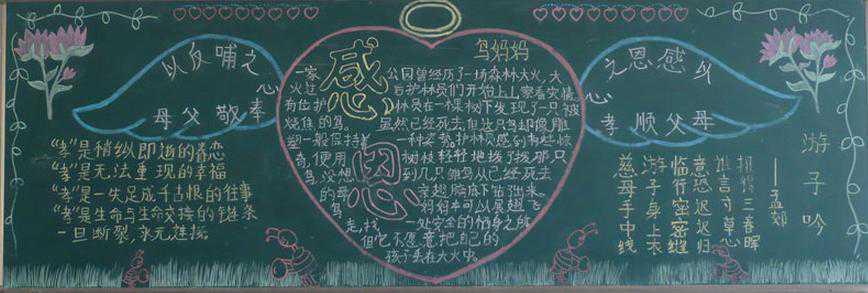 以反哺之
心
奉敬父母
之恩感以
心
孝顺父母
"孝"是稍纵即逝的眷恋
"孝"是无法重现的幸福
"孝"是一失足成千古恨的往事
"孝"是生命与生命交接的链条
一旦断裂,永无连接
感恩
鸟妈妈
一家公园曾经历了一场森林大火,大
火过后护林员们开始上山察看灾情
有位护林员在一棵树下发现了一只被
烧焦的鸟。虽然已经死去,但这只鸟却像雕
塑一般保持着一种姿势,护林员感到有些惊
奇,便用树枝轻轻地拨了拨那只
鸟,没想到几只雏鸟从已经死去
的母亲翅膀底下钻出来。
鸟妈妈本可以展翅飞
走,找一处安全的栖身之所
但它不愿意把自己的
孩子丢在大火中。
游子吟
——孟郊
慈母手中线
游子身上衣
临行密密缝
意恐迟迟归
谁言寸草心
报得三春晖